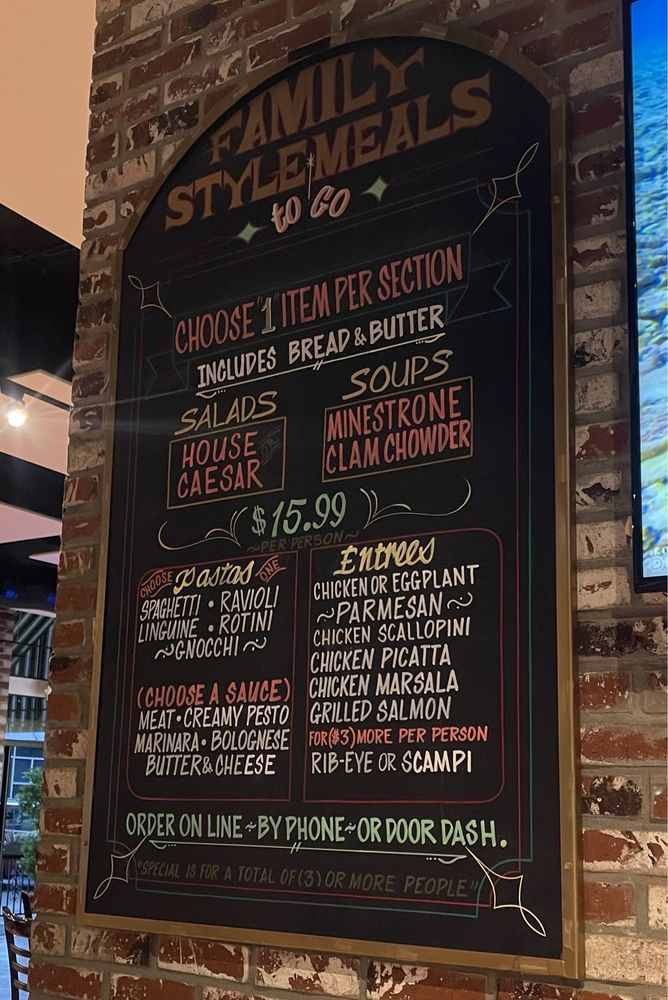 FAMILY
STYLE MEALS
to GO
CHOOSE "1" ITEM PER SECTION
INCLUDES BREAD & BUTTER
SALADS
HOUSE OR
CAESAR
SOUPS
MINESTRONE
CLAM CHOWDER
$15.99
~PER PERSON~
CHOOSE Pastas ONE
SPAGHETTI • RAVIOLI
LINGUINE • ROTINI
~GNOCCHI~
(CHOOSE A SAUCE)
MEAT • CREAMY PESTO
MARINARA • BOLOGNESE
BUTTER & CHEESE
Entrees
CHICKEN OR EGGPLANT
~PARMESAN~
CHICKEN SCALLOPINI
CHICKEN PICATTA
CHICKEN MARSALA
GRILLED SALMON
FOR ($3) MORE PER PERSON
RIB-EYE OR SCAMPI
ORDER ON LINE ~ BY PHONE ~ OR DOOR DASH.
"SPECIAL IS FOR A TOTAL OF (3) OR MORE PEOPLE"